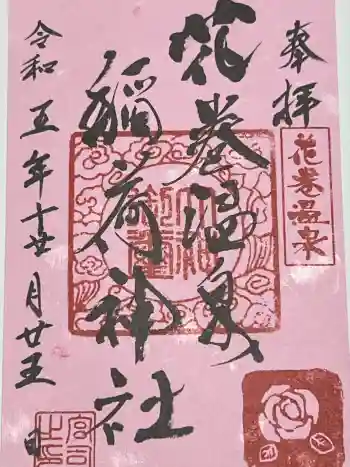 奉拝
花巻温泉
花巻温泉
稲荷神社
令和五年十廿月廿五日